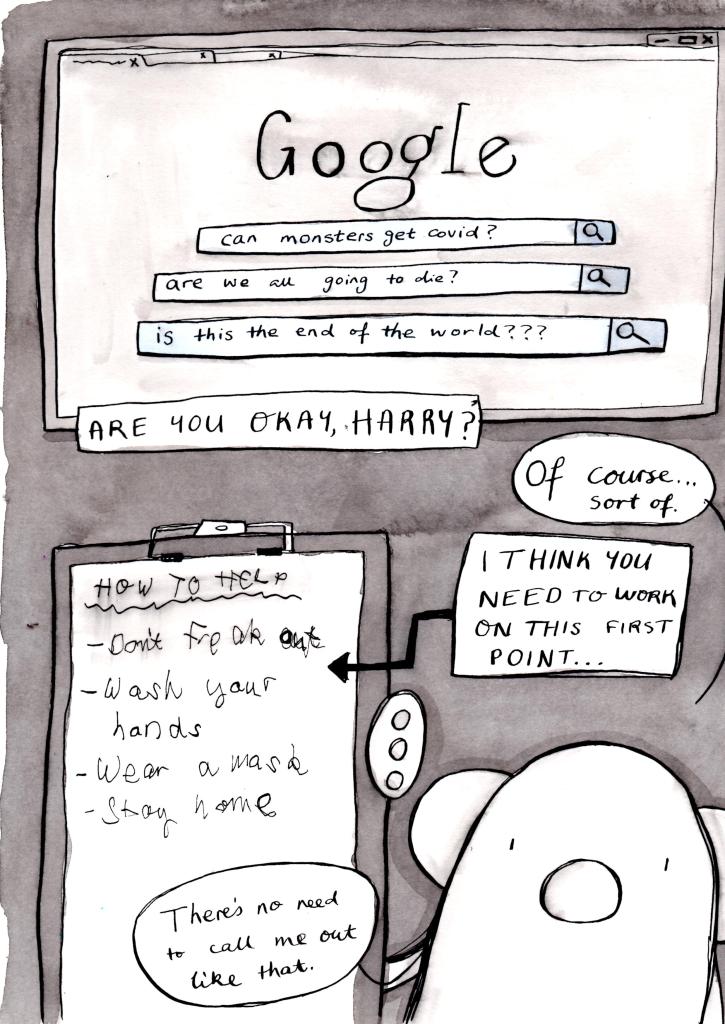 Google
can monsters get covid?
are we all going to die?
is this the end of the world???
ARE YOU OKAY, HARRY?
Of course...
sort of.
I THINK YOU
NEED TO WORK
ON THIS FIRST
POINT...
HOW TO HELP
- Don't freak out
- Wash your
hands
- Wear a mask
- Stay home
There's no need
to call me out
like that.